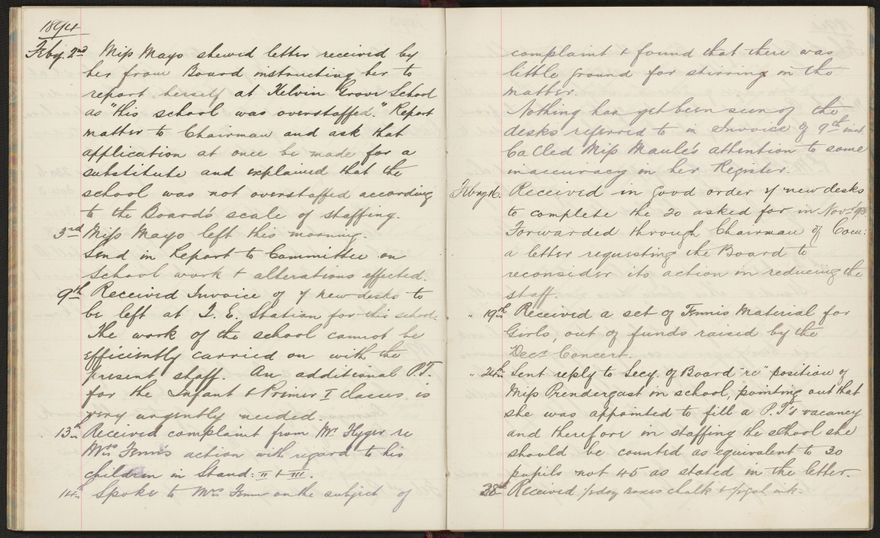 1894
Feby. 2nd Miss Mayo shewed letter received by
her from Board instructing her to
report herself at Kelvin Grove School
as "this school was overstaffed." Report
matter to Chairman and ask that
application at once be made for a
substitute and explained that the
school was not overstaffed according
to the Board's scale of staffing.
3rd Miss Mayo left this morning.
Send in Report to Committee on
School work & alterations effected.
9th Received Invoice of 7 new desks to
be left at S. E. Station for this school.
The work of the school cannot be
efficiently carried on with the
present staff. An additional P.T.
for the Infant & Primer I classes is
very urgently needed.
13th Received complaint from Mr. Flyger re
Mrs Fenn's action with regard to his
children in Stand: II & III.
14th Spoke to Mrs Fenn on the subject of
complaint & found that there was
little ground for stirring in the
matter.
Nothing has yet been seen of the
desks referred to in Invoice of 9th inst
Called Miss Maule's attention to some
inaccuracy in her Register.
Feby 16. Received in good order 7 new desks
to complete the 20 asked for in Novr. '93
Forwarded through Chairman of Com:
a letter requesting the Board to
reconsider its action in reducing the
staff.
" 19th Received a set of Tennis Material for
Girls, out of funds raised by the
Decr. Concert.
" Sent reply to Secy. of Board "re" position of
Miss Prendergast in school, pointing out that
she was appointed to fill a P.T's vacancy
and therefore in staffing the school she
should be counted as equivalent to 30
pupils not 45 as stated in the letter.
28th Received boxes chalk & ink.